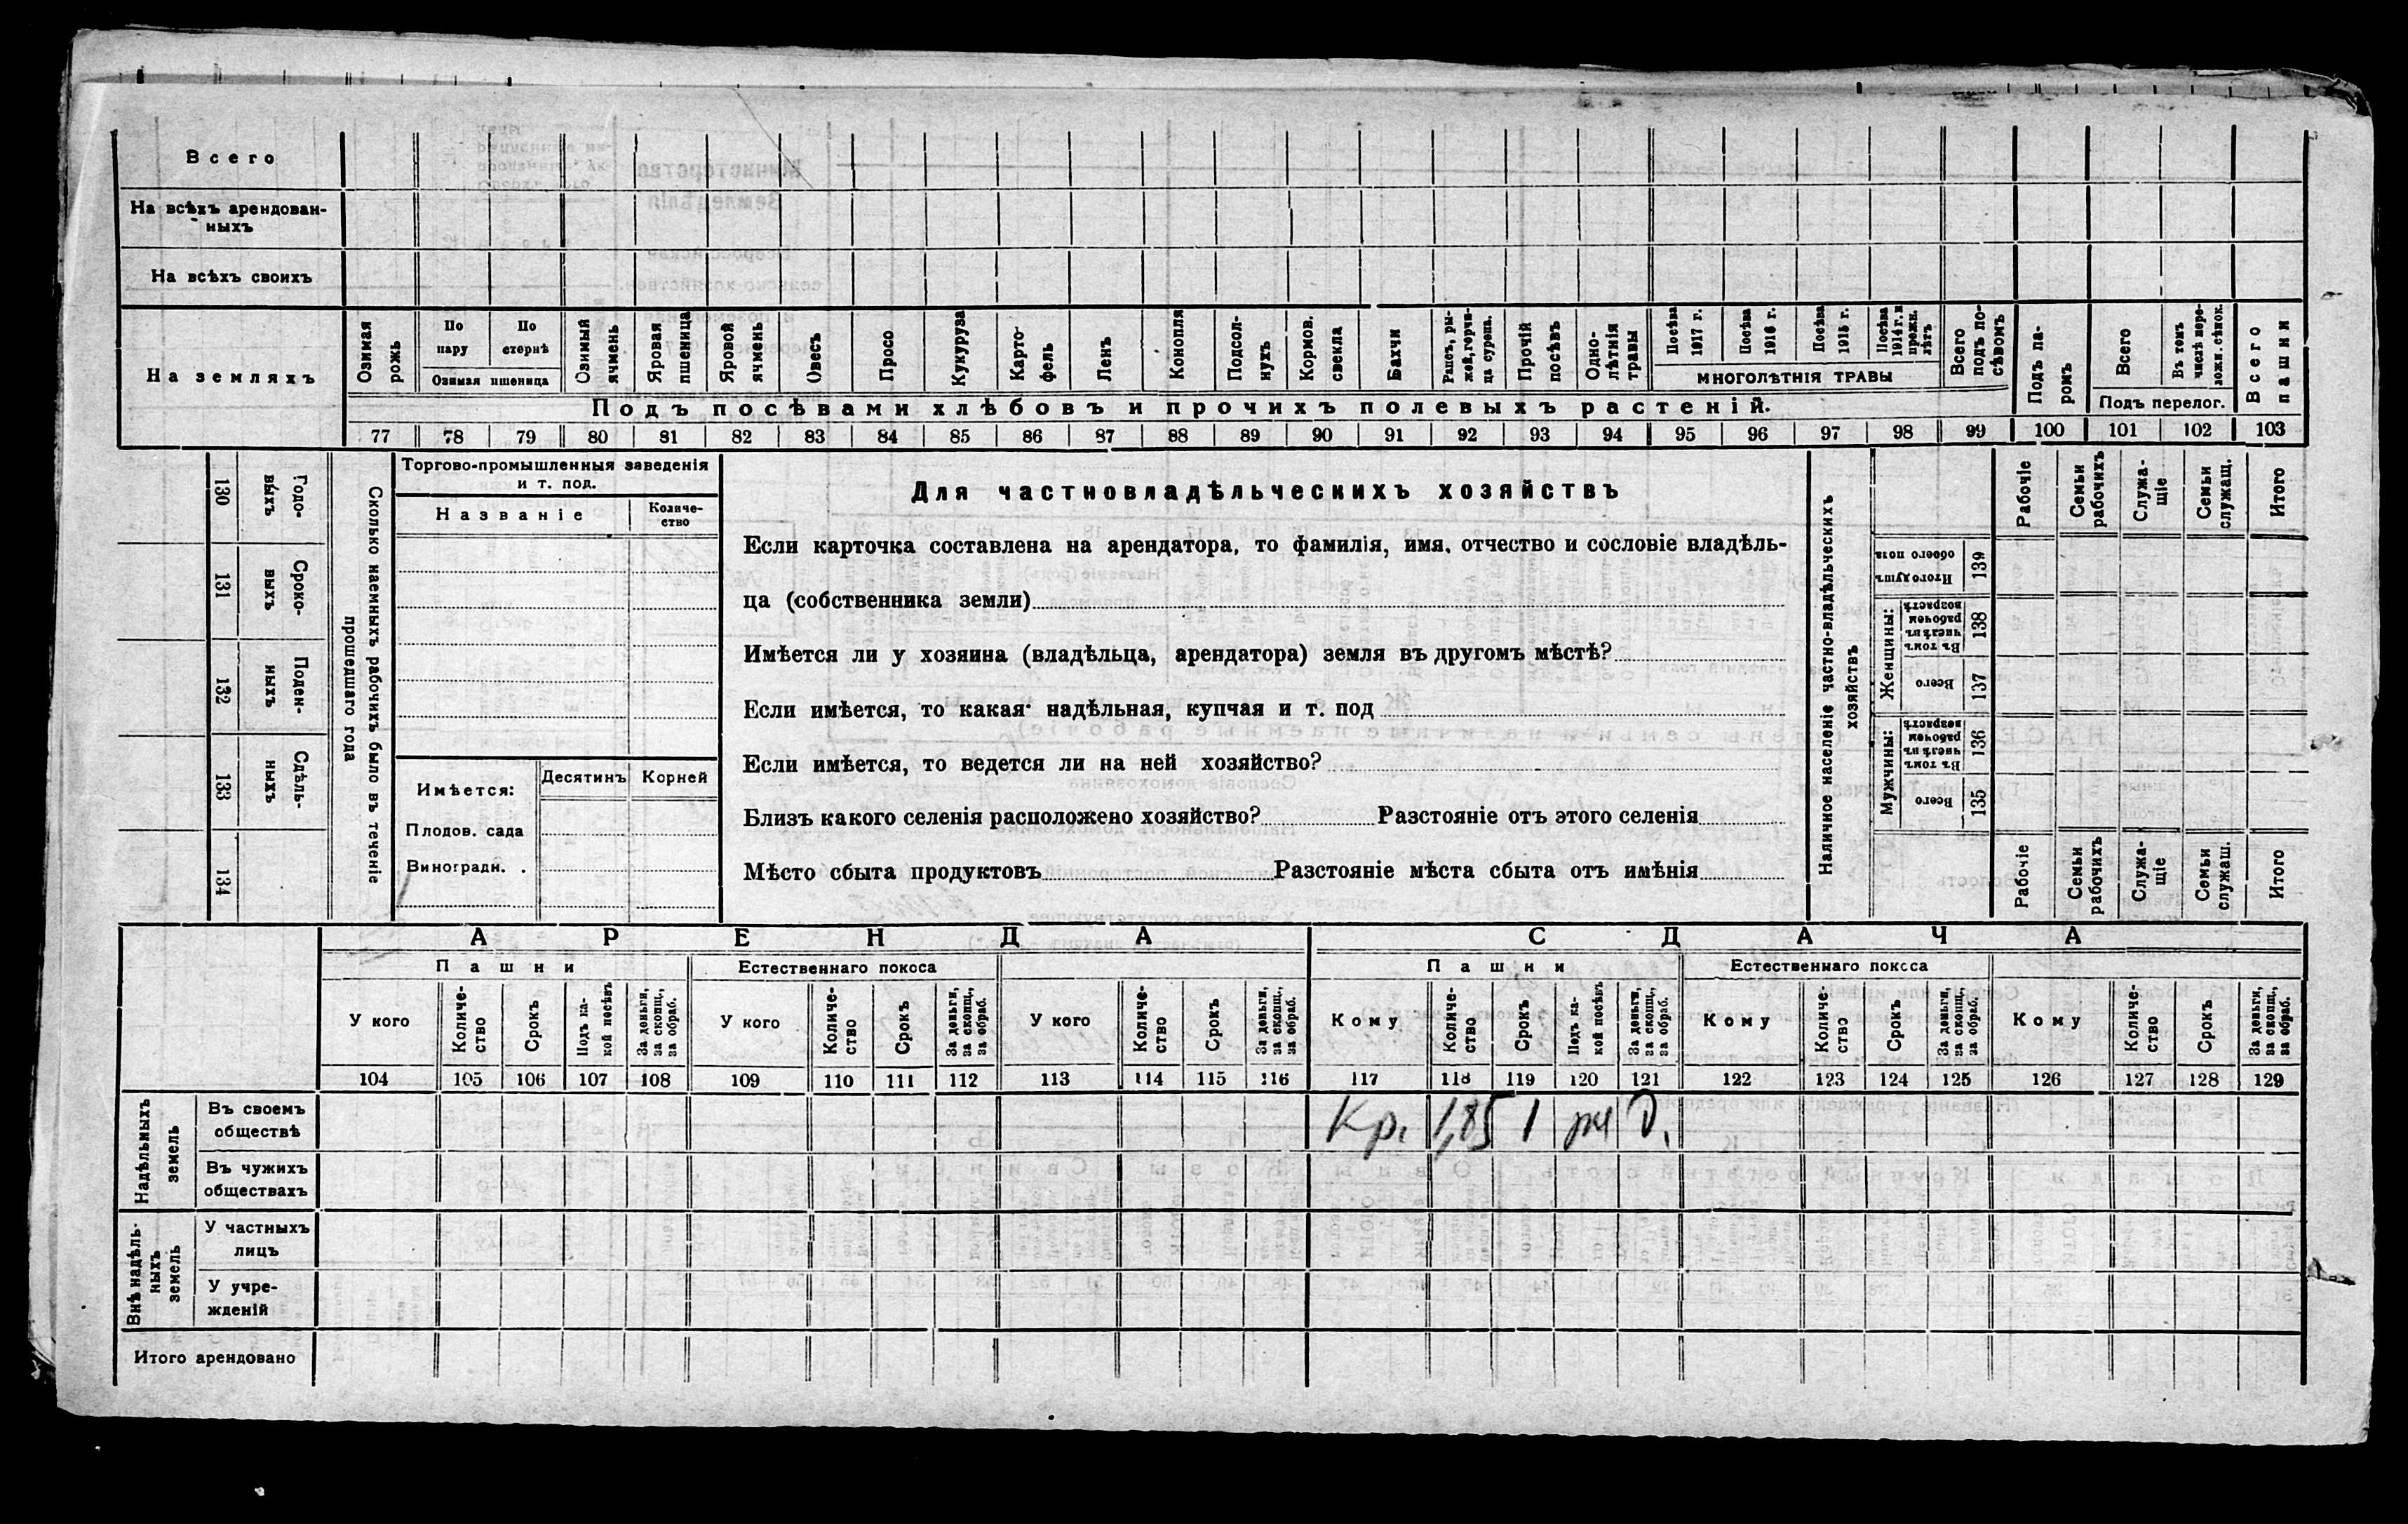 Всего
На всѣхъ арендован-
ныхъ
На всѣхъ своихъ
На земляхъ
Озимая рожь
По пару
По стернѣ
Озимая пшеница
Озимый ячмень
Яровая пшеница
Яровой ячмень
Овесъ
Просо
Кукуруза
Карто-
фель
Ленъ
Конопля
Подсол-
нухъ
Кормов. свекла
Бахчи
Рапсъ, ры-
жей, горчи-
ца сурепа.
Прочій посѣвъ
Одно-
лѣтнія травы
Посѣва 1917 г.
Посѣва 1916 г.
Посѣва 1915 г.
Посѣва 1914 г. и прежн. лѣтъ
МНОГОЛѢТНІЯ ТРАВЫ
Всего подъ по-
сѣвомъ
Подъ па-
ромъ
Всего
Въ томъ числѣ пере-
лож. сѣнок.
Подъ перелог.
Всего пашни
Подъ посѣвами хлѣбовъ и прочихъ полевыхъ растеній.
77 78 79 80 81 82 83 84 85 86 87 88 89 90 91 92 93 94 95 96 97 98 99 100 101 102 103
130 Годо-
выхъ
131 Сроко-
выхъ
132 Поден-
ныхъ
133 Сдѣль-
ныхъ
134
Сколько наемныхъ рабочихъ было въ теченіе
прошедшаго года
Торгово-промышленныя заведенія
и т. под.
Названіе
Количе-
ство
Имѣется:
Десятинъ
Корней
Плодов. сада
Виноградн. .
Для частновладѣльческихъ хозяйствъ
Если карточка составлена на арендатора, то фамилія, имя, отчество и сословіе владѣль-
ца (собственника земли)
Имѣется ли у хозяина (владѣльца, арендатора) земля въ другомъ мѣстѣ?
Если имѣется, то какая: надѣльная, купчая и т. под
Если имѣется, то ведется ли на ней хозяйство?
Близъ какого селенія расположено хозяйство? Разстояніе отъ этого селенія
Мѣсто сбыта продуктовъ Разстояніе мѣста сбыта отъ имѣнія
Наличное населеніе частно-владѣльческихъ
хозяйствъ
Рабочіе
Семьи рабочихъ
Служа-
щіе
Семьи служащ.
Итого
Итого душъ обоего пола 139
Женщины:
Въ томъ числѣ въ рабочемъ возрастѣ 138
Всего 137
Мужчины:
Въ томъ числѣ въ рабочемъ возрастѣ 136
Всего 135
Рабочіе
Семьи рабочихъ
Служа-
щіе
Семьи служащ.
Итого
АРЕНДА
СДАЧА
Пашни
Естественнаго покоса
Пашни
Естественнаго покоса
У кого
Количе-
ство
Срокъ
Подъ ка-
кой посѣвъ
За деньги, за скопщ., за обраб.
У кого
Количе-
ство
Срокъ
За деньги, за скопщ., за обраб.
У кого
Количе-
ство
Срокъ
За деньги, за скопщ., за обраб.
Кому
Количе-
ство
Срокъ
Подъ ка-
кой посѣвъ
За деньги, за скопщ., за обраб.
Кому
Количе-
ство
Срокъ
За деньги, за скопщ., за обраб.
Кому
Количе-
ство
Срокъ
За деньги, за скопщ., за обраб.
104 105 106 107 108 109 110 111 112 113 114 115 116 117 118 119 120 121 122 123 124 125 126 127 128 129
Надѣльныхъ земель
Въ своемъ
обществѣ
Кр. 1,85 1
Въ чужихъ
обществахъ
Внѣ надѣль-
ныхъ земель
У частныхъ
лицъ
У учре-
жденій
Итого арендовано